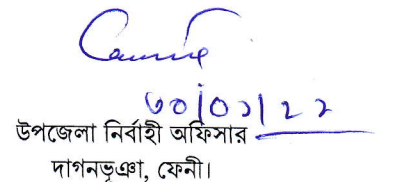 ৩০|০১|২২
উপজেলা নির্বাহী অফিসার
দাগনভূঞা, ফেনী।